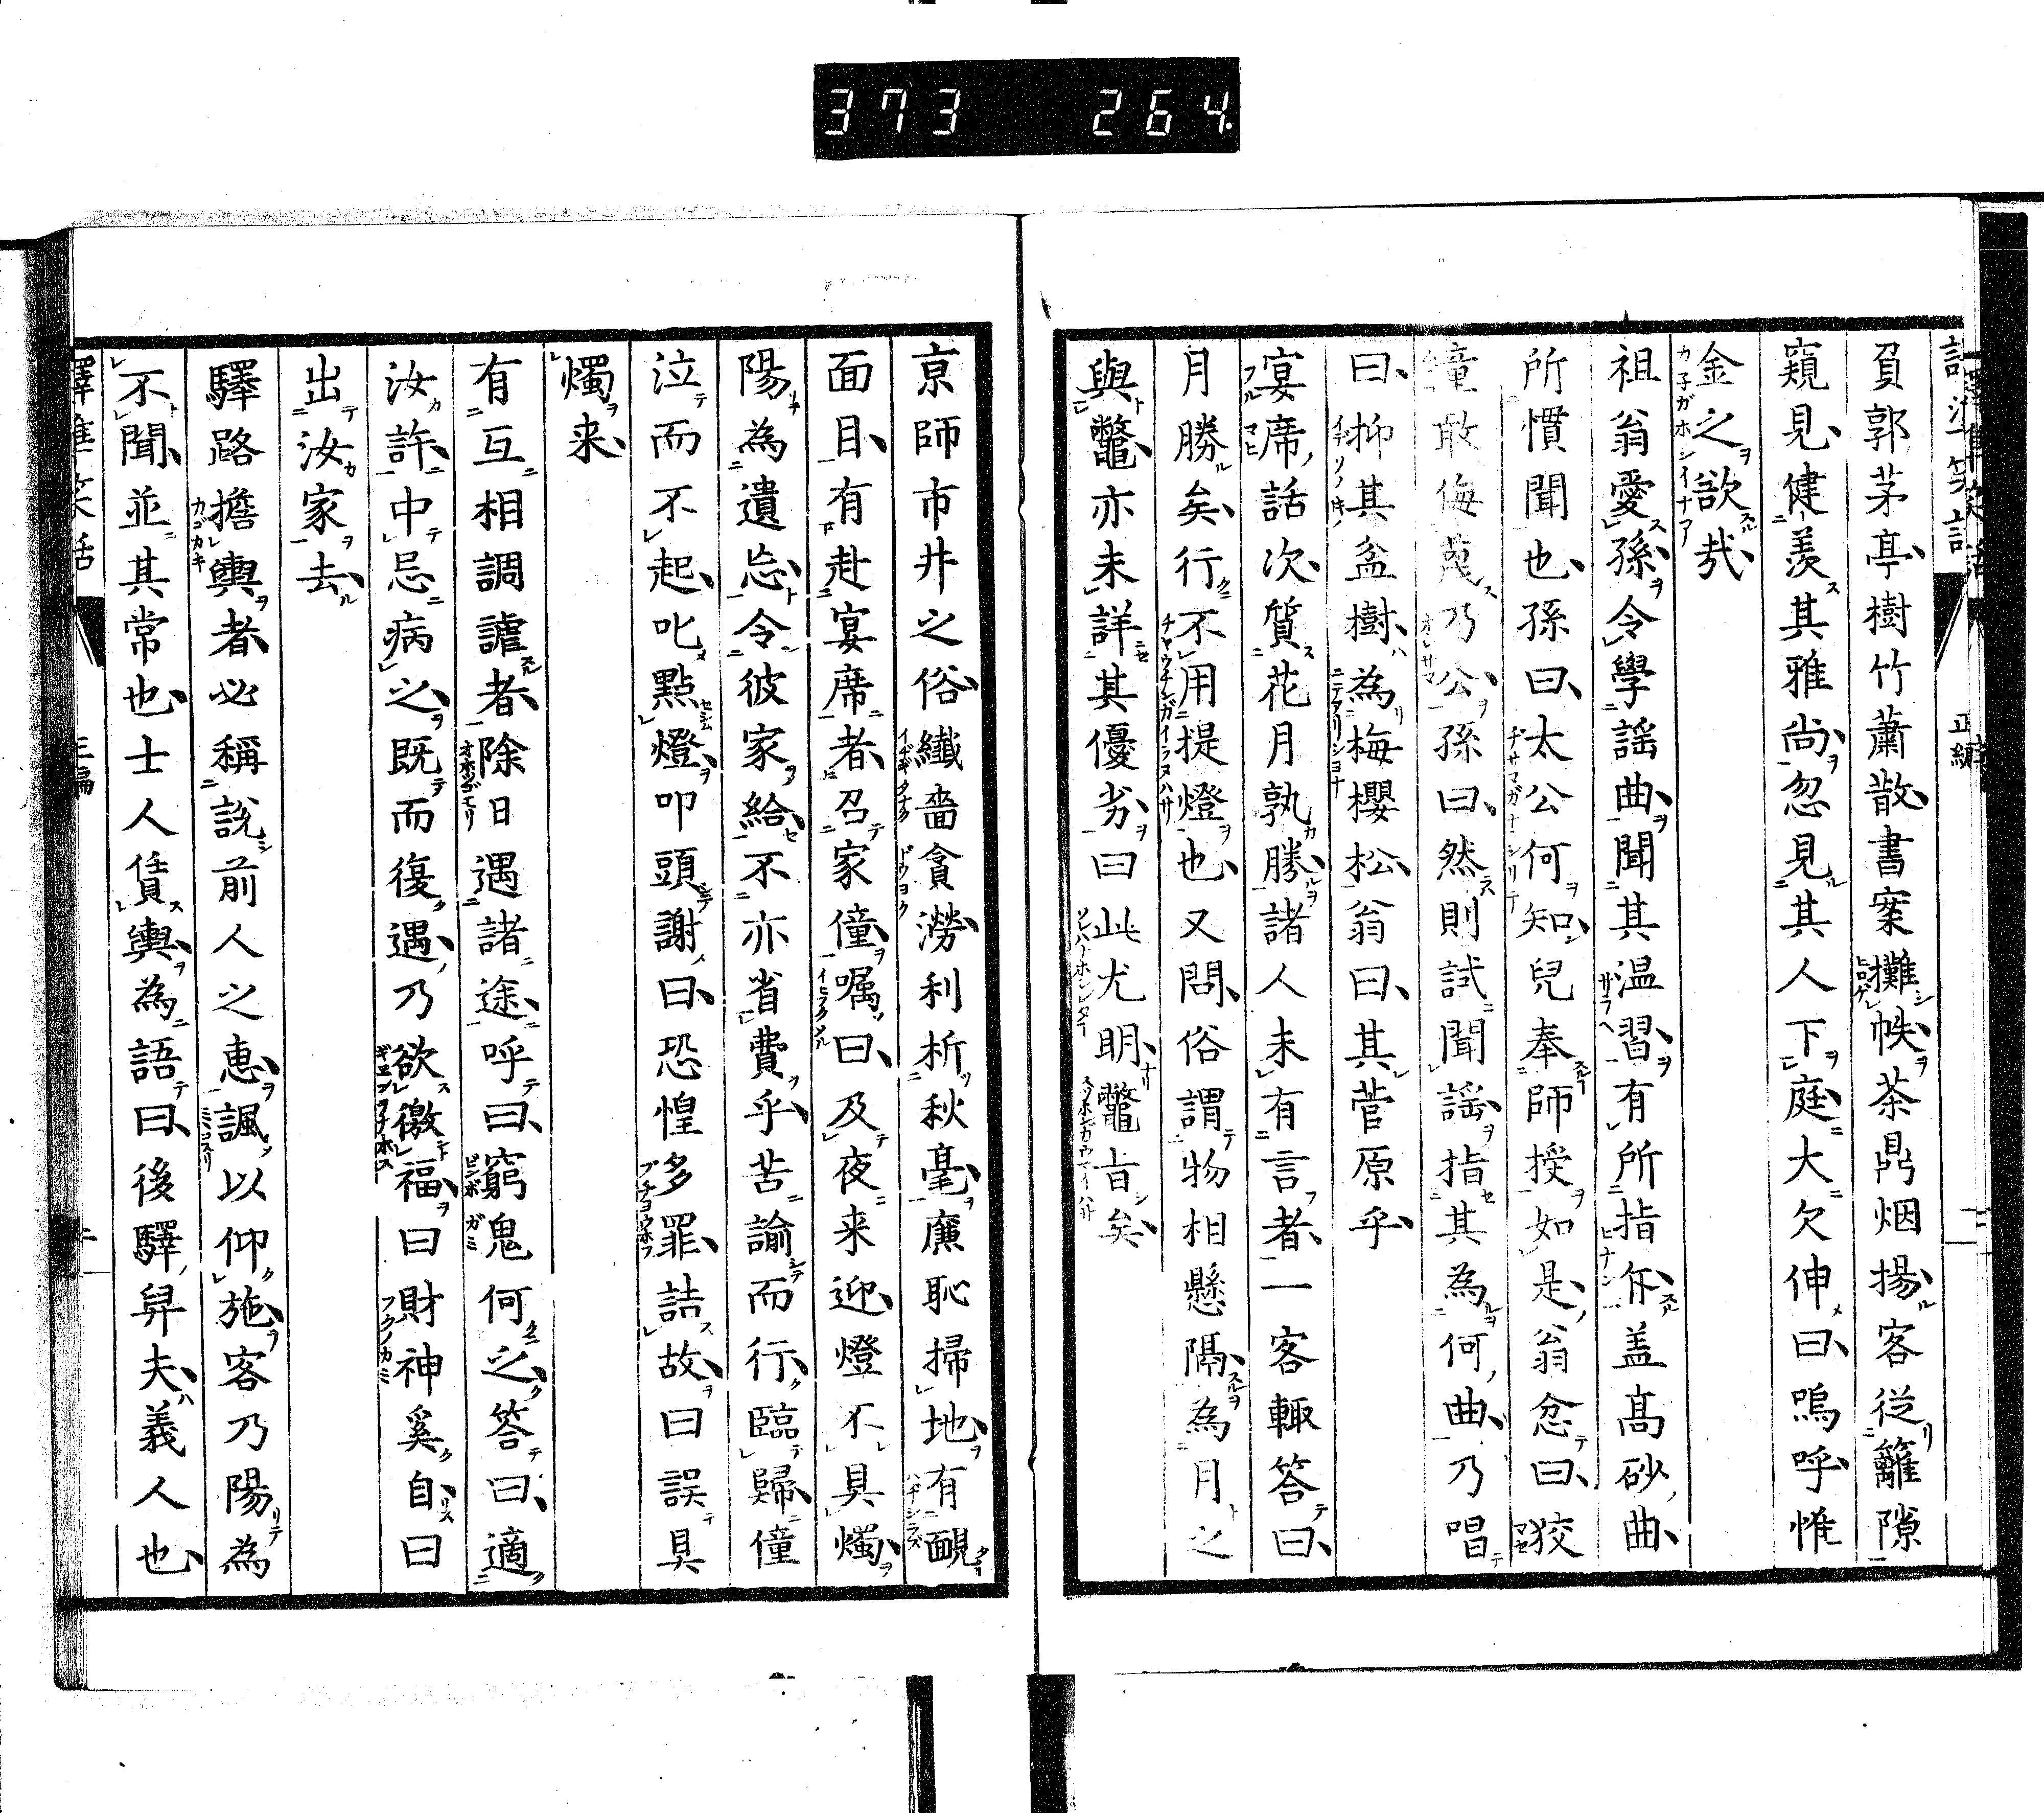 373 264
負郭茅亭樹竹蕭散書案攤帙茶鼎烟揚客從籬隙
窺見健羨其雅尚忽見其人下庭大欠伸曰嗚呼惟
金之欲哉
祖翁愛孫令學謡曲聞其温習有所指斥盖髙砂曲
所慣聞也孫曰太公何知兒奉師授如是翁忿曰狡
童敢侮蔑乃公孫曰然則試聞謡指其為何曲乃唱
曰抑其盆樹為梅櫻松翁曰其菅原乎
宴席話次質花月孰勝諸人未有言者一客輙答曰
月勝矣行不用提燈也又問俗謂物相懸隔為月之
與鼈亦未詳其優劣曰此尤明鼈旨矣
京師市井之俗纎嗇貪澇利析秋毫廉恥掃地有靦
面目有赴宴席者召家僮嘱曰及夜来迎燈不具燭
陽為遺忘令彼家給不亦省費乎苦諭而行臨歸僮
泣而不起叱點燈叩頭謝曰恐惶多罪詰故曰誤具
燭来
有互相調謔者除日遇諸途呼曰窮鬼何之答曰適
汝許中忌病之既而復遇乃欲徼福曰財神奚自曰
出汝家去
驛路擔輿者必稱說前人之惠諷以仰施客乃陽為
不聞並其常也士人賃輿為語曰後驛舁夫義人也